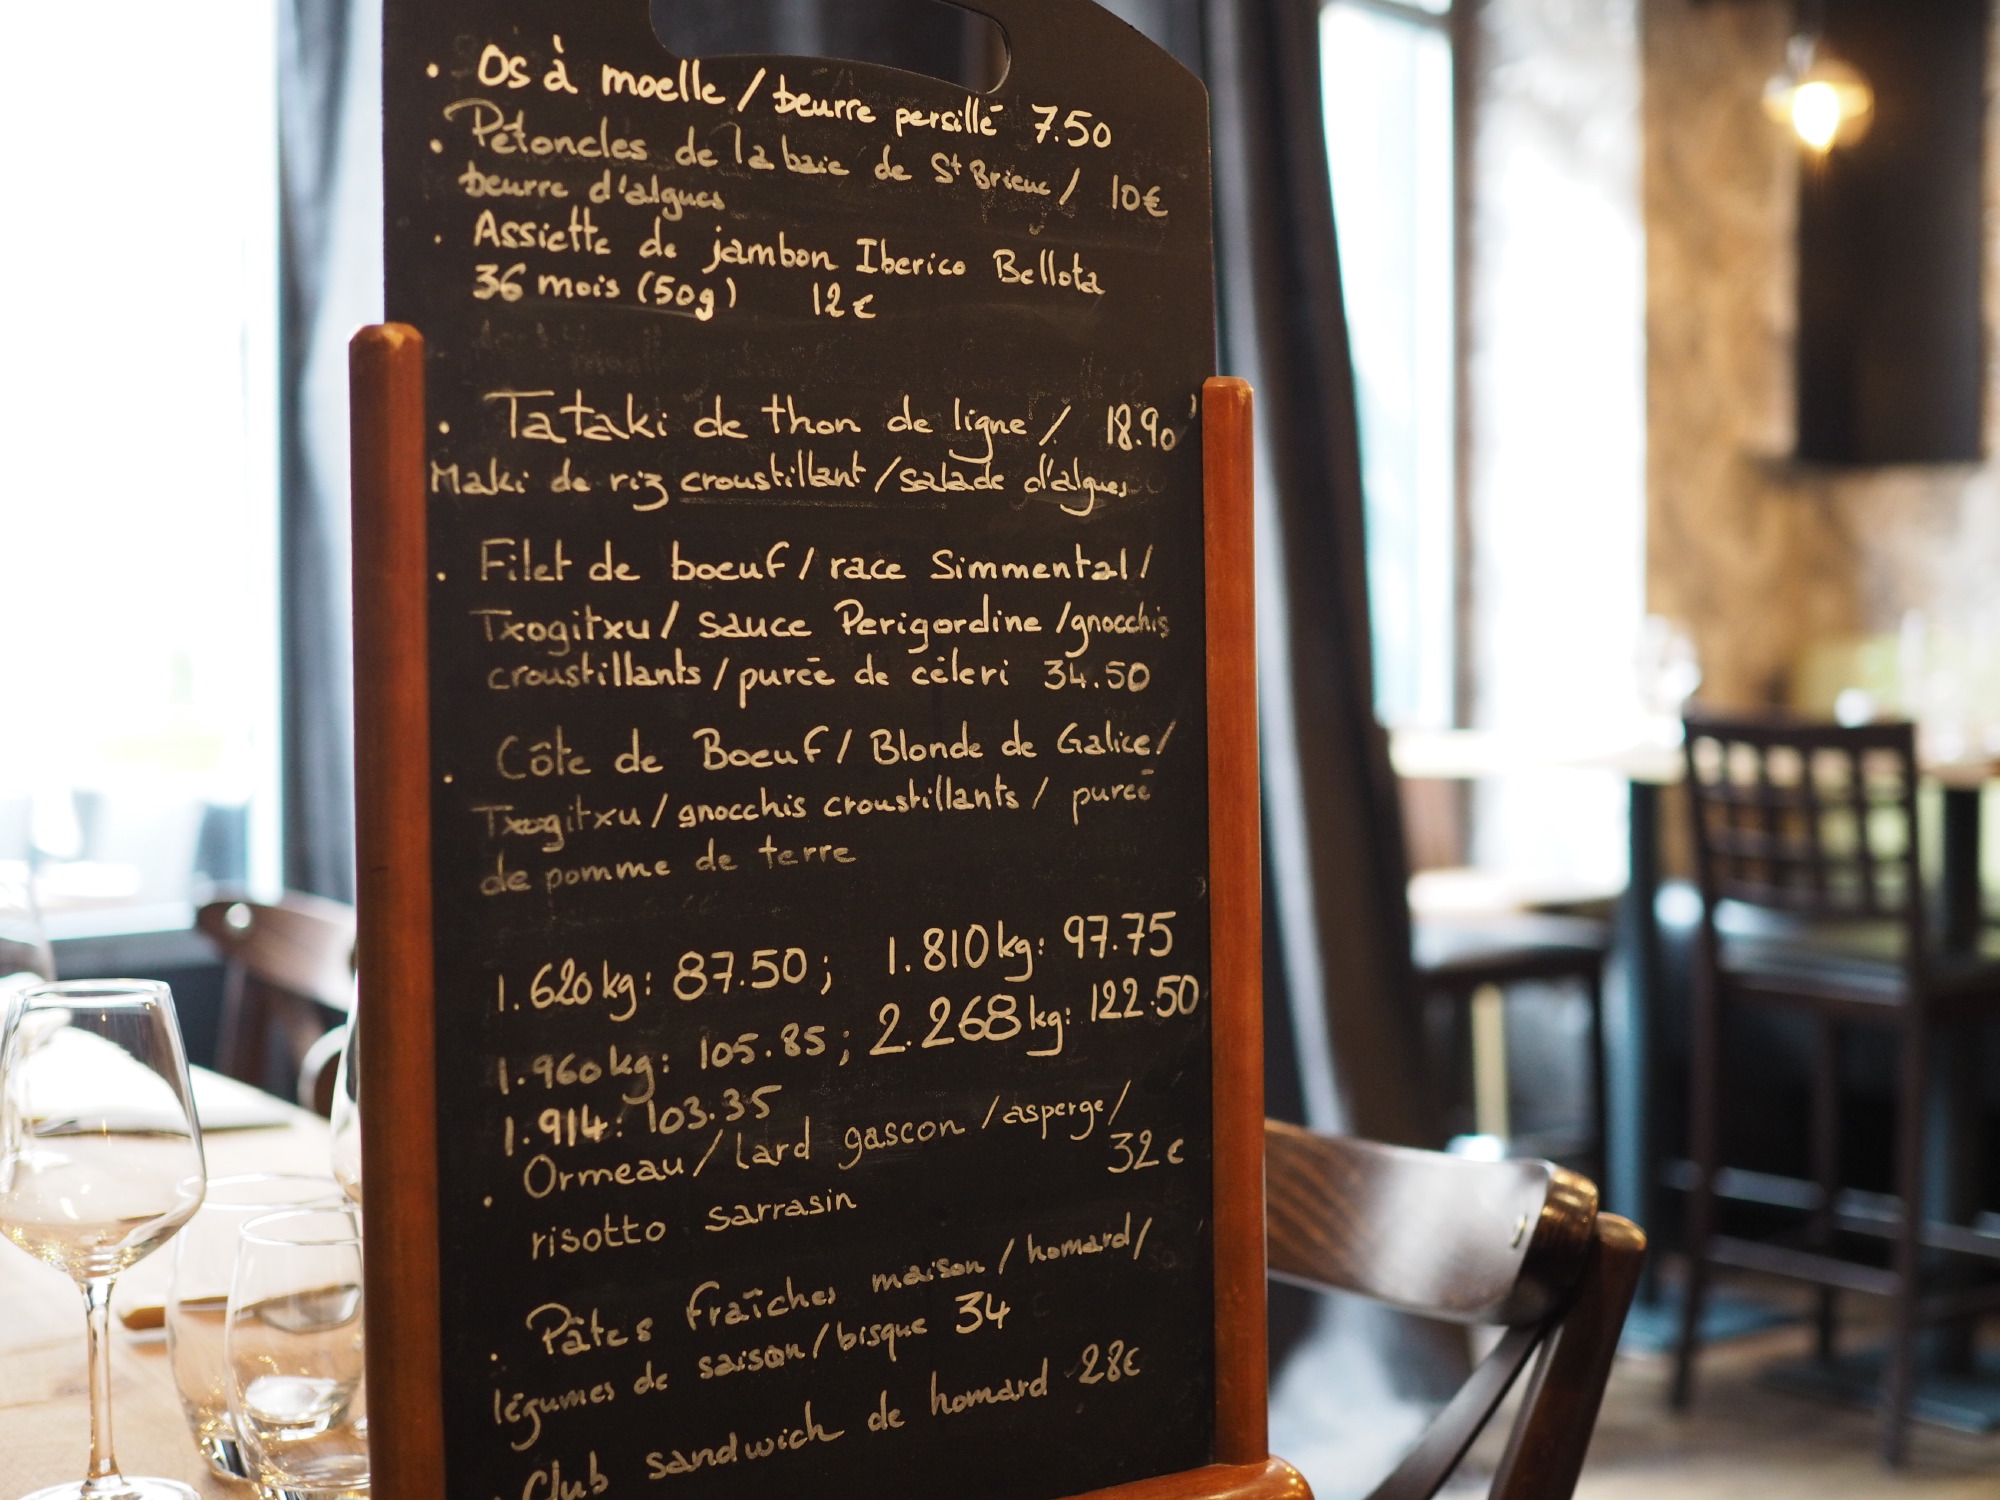 . Os à moelle / beurre persillé 7.50
. Pétoncles de la baie de St Brieuc / 10€
beurre d'algues
. Assiette de jambon Iberico Bellota
36 mois (50g) 12€
. Tataki de thon de ligne / 18.90
Maki de riz croustillant / salade d'algues
. Filet de boeuf / race Simmental /
Txogitxu / sauce Perigordine / gnocchis
croustillants / purée de céleri 34.50
. Côte de Boeuf / Blonde de Galice /
Txogitxu / gnocchis croustillants / purée
de pomme de terre
1.620kg: 87.50 ; 1.810kg: 97.75
1.960kg: 105.85 ; 2.268kg: 122.50
1.914: 103.35
. Ormeau / lard gascon / asperge /
risotto sarrasin 32€
. Pâtes fraîches maison / homard /
légumes de saison / bisque 34
. Club sandwich de homard 28€